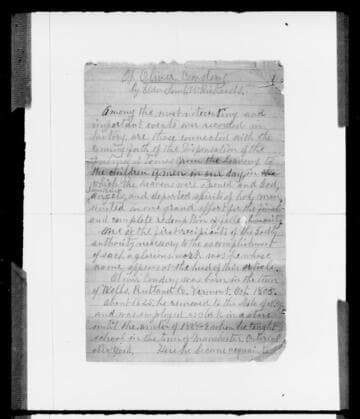 Of Oliver Cowdery 1
by Elder Saml W. Richards.
Among the most interesting and
important events ever recorded in
history, are those connected with the
coming forth of the Dispensation of the
fullness of Times from the heavens to
the children of men in our day, in
which the heavens were opened and God,
angels, and departed spirits of holy men
united in one grand effort for the
and complete redemption of humanity
One of the first recipients of the Godly
authority necessary to the accomplishment
of such a glorious work was he whose
name appears at the head of this article.
Oliver Cowdery was born in the town
of Wells, Rutland Co. Vermont, Oct. 1805.
about 1825, he removed to the State of
and was employed as clerk in a store
until the winter of when he taught
school in the town of Manchester, Ontario Co
New York. Here he became acquainted